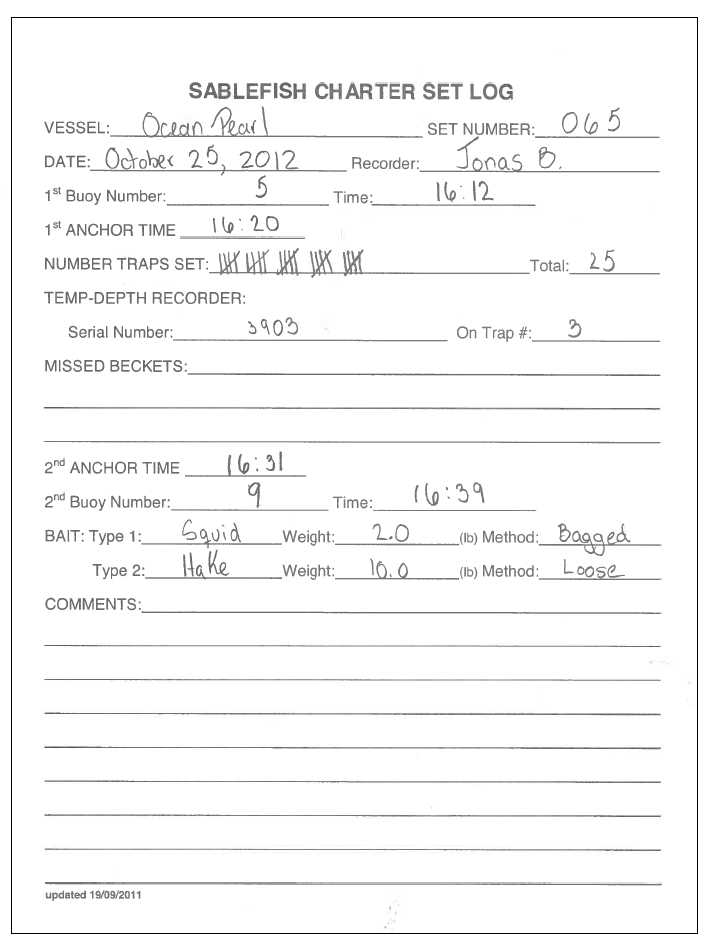 SABLEFISH CHARTER SET LOG
VESSEL: Ocean Pearl SET NUMBER: 065
DATE: October 25, 2012 Recorder: Jonas B.
1st Buoy Number: 5 Time: 16:12
1st ANCHOR TIME 16:20
NUMBER TRAPS SET: 卌 卌 卌 卌 卌 Total: 25
TEMP-DEPTH RECORDER:
Serial Number: 3903 On Trap #: 3
MISSED BECKETS:
2nd ANCHOR TIME 16:31
2nd Buoy Number: 9 Time: 16:39
BAIT: Type 1: Squid Weight: 2.0 (lb) Method: Bagged
Type 2: Hake Weight: 10.0 (lb) Method: Loose
COMMENTS:
updated 19/09/2011